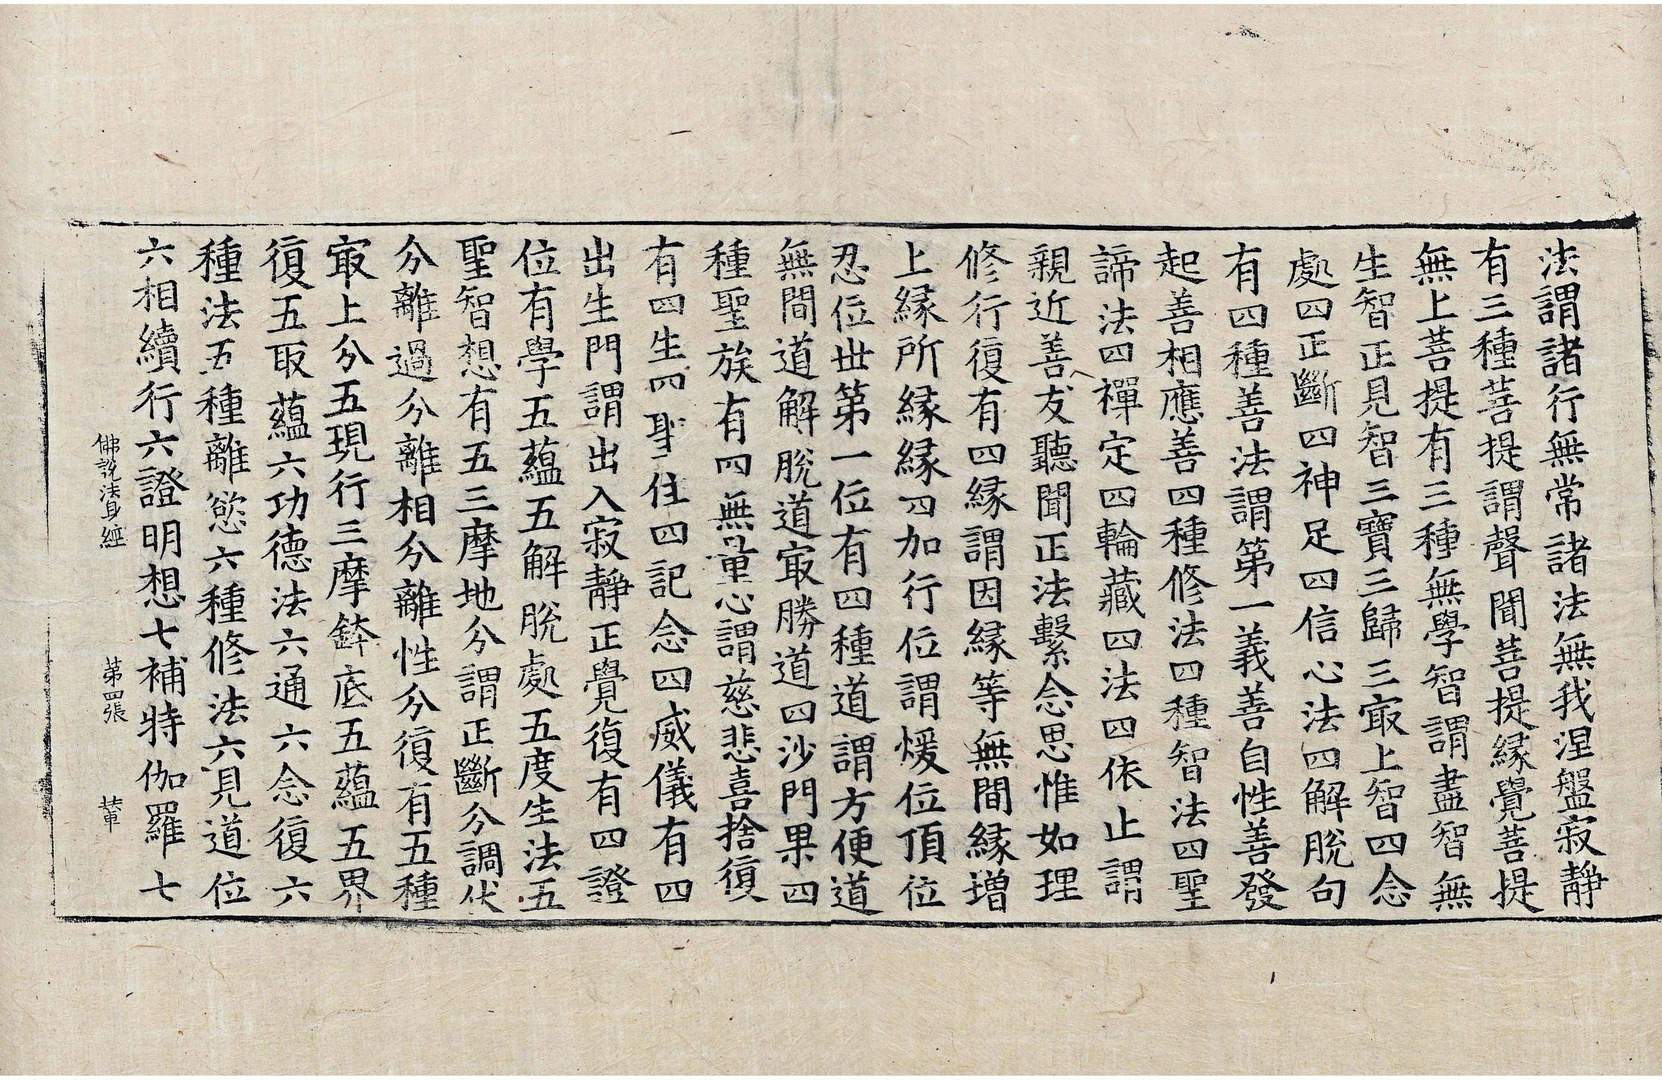 法謂諸行無常諸法無我涅盤寂靜
有三種菩提謂聲聞菩提緣覺菩提
無上菩提有三種無學智謂盡智無
生智正見智三寶三歸三㝡上智四念
處四正斷四神足四信心法四解脫句
有四種善法謂第一義善自性善發
起善相應善四種修法四種智法四聖
諦法四禪定四輪藏四法四依止謂
親近善友聽聞正法繫念思惟如理
修行復有四緣謂因緣等無間緣增
上緣所緣緣四加行位謂煖位頂位
忍位世第一位有四種道謂方便道
無間道解脫道㝡勝道四沙門果四
種聖族有四無量心謂慈悲喜捨復
有四生四聖住四記念四威儀有四
出生門謂出入寂靜正覺復有四證
位有學五蘊五解脫處五度生法五
聖智想有五三摩地分謂正斷分調伏
分離過分離相分離性分復有五種
㝡上分五現行三摩鉢底五蘊五界
復五取蘊六功德法六通六念復六
種法五種離慾六種修法六見道位
六相續行六證明想七補特伽羅七
佛說法身經 第四張 輦